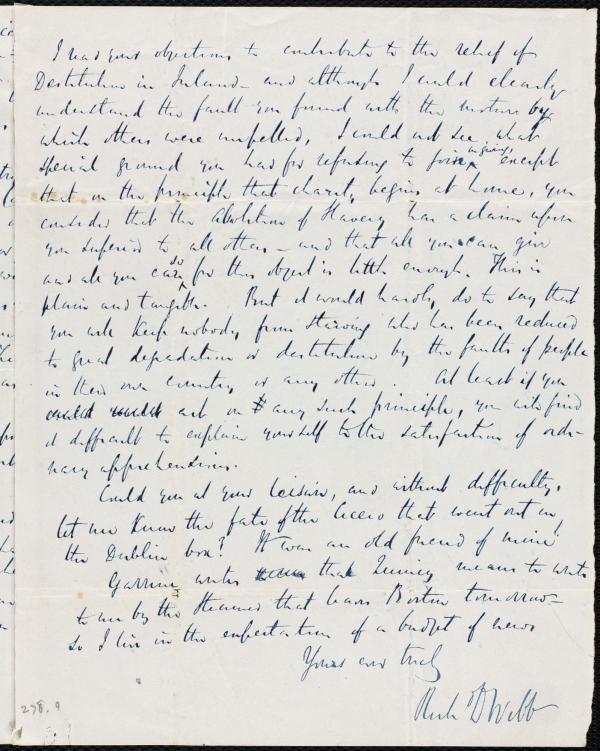 I read your objections to contribute to the relief of
Destitution in Ireland - and although I could clearly
understand the fault you found with the motives by
which others were impelled, I could not see what
special ground you had for refusing to join in giving, except
that on the principle that charity begins at home, you
consider that the Abolition of Slavery has a claim upon
you superior to all others - and that all you can give
and all you can do for this object is little enough. This is
plain and tangible. But it would hardly do to say that
you will keep nobody from starving who has been reduced
to great degradation or destitution by the faults of people
in their own country or any other. At least if you
act on any such principle, you will find
it difficult to explain yourself to the satisfaction of ordi-
nary apprehensions.
Could you at your leisure, and without difficulty,
let me know the fate of the Cicero that went out in
the Dublin box? It was an old friend of mine.
Garrison writes that Quincy means to write
to me by the Steamer that leaves Boston tomorrow -
so I live in the expectation of a budget of news
Yours ever truly
Rich D Webb
238.9